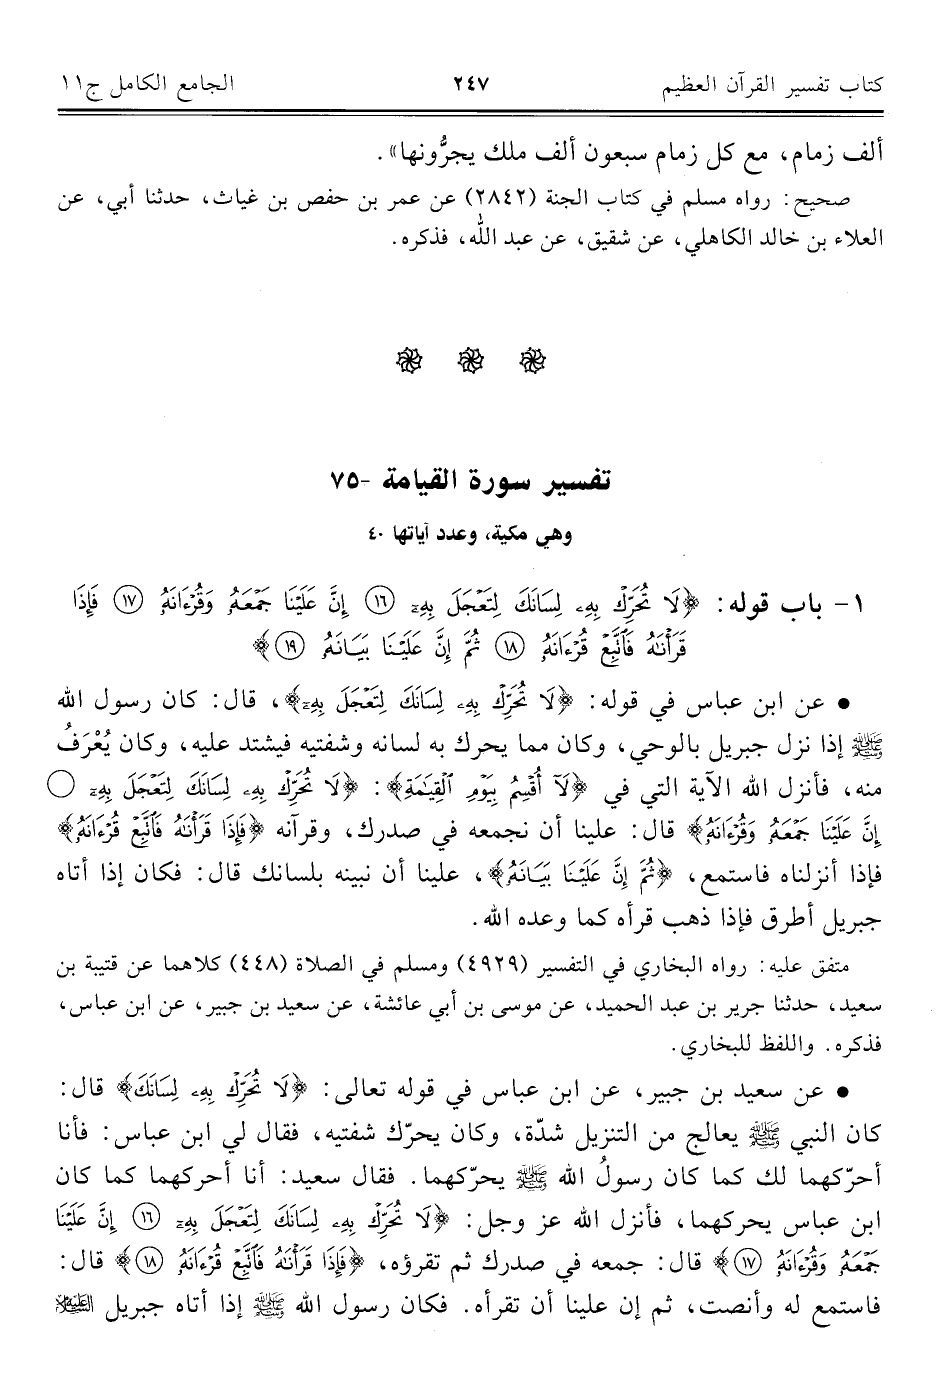 كتاب تفسير القرآن العظيم ٢٤٧ الجامع الكامل ج١١
ألف زمام، مع كل زمام سبعون ألف ملك يجرُّونها».
صحيح: رواه مسلم في كتاب الجنة (٢٨٤٢) عن عمر بن حفص بن غياث، حدثنا أبي، عن
العلاء بن خالد الكاهلي، عن شقيق، عن عبد الله، فذكره.
تفسير سورة القيامة -٧٥
وهي مكية، وعدد آياتها ٤٠
١- باب قوله: ﴿لَا تُحَرِّكْ بِهِۦ لِسَانَكَ لِتَعْجَلَ بِهِۦٓ ١٦ إِنَّ عَلَيْنَا جَمْعَهُۥ وَقُرْءَانَهُۥ ١٧ فَإِذَا
قَرَأْنَٰهُ فَٱتَّبِعْ قُرْءَانَهُۥ ١٨ ثُمَّ إِنَّ عَلَيْنَا بَيَانَهُۥ ١٩﴾
• عن ابن عباس في قوله: ﴿لَا تُحَرِّكْ بِهِۦ لِسَانَكَ لِتَعْجَلَ بِهِۦٓ﴾، قال: كان رسول الله
ﷺ إذا نزل جبريل بالوحي، وكان مما يحرك به لسانه وشفتيه فيشتد عليه، وكان يُعْرَفُ
منه، فأنزل الله الآية التي في ﴿لَآ أُقْسِمُ بِيَوْمِ ٱلْقِيَٰمَةِ﴾: ﴿لَا تُحَرِّكْ بِهِۦ لِسَانَكَ لِتَعْجَلَ بِهِۦٓ
إِنَّ عَلَيْنَا جَمْعَهُۥ وَقُرْءَانَهُۥ﴾ قال: علينا أن نجمعه في صدرك، وقرآنه ﴿فَإِذَا قَرَأْنَٰهُ فَٱتَّبِعْ قُرْءَانَهُۥ﴾
فإذا أنزلناه فاستمع، ﴿ثُمَّ إِنَّ عَلَيْنَا بَيَانَهُۥ﴾، علينا أن نبينه بلسانك قال: فكان إذا أتاه
جبريل أطرق فإذا ذهب قرأه كما وعده الله.
متفق عليه: رواه البخاري في التفسير (٤٩٢٩) ومسلم في الصلاة (٤٤٨) كلاهما عن قتيبة بن
سعيد، حدثنا جرير بن عبد الحميد، عن موسى بن أبي عائشة، عن سعيد بن جبير، عن ابن عباس،
فذكره. واللفظ للبخاري.
• عن سعيد بن جبير، عن ابن عباس في قوله تعالى: ﴿لَا تُحَرِّكْ بِهِۦ لِسَانَكَ﴾ قال:
كان النبي ﷺ يعالج من التنزيل شدّة، وكان يحرّك شفتيه، فقال لي ابن عباس: فأنا
أحرّكهما لك كما كان رسولُ الله ﷺ يحرّكهما. فقال سعيد: أنا أحركهما كما كان
ابن عباس يحركهما، فأنزل الله عز وجل: ﴿لَا تُحَرِّكْ بِهِۦ لِسَانَكَ لِتَعْجَلَ بِهِۦٓ ١٦ إِنَّ عَلَيْنَا
جَمْعَهُۥ وَقُرْءَانَهُۥ ١٧﴾ قال: جمعه في صدرك ثم تقرؤه، ﴿فَإِذَا قَرَأْنَٰهُ فَٱتَّبِعْ قُرْءَانَهُۥ ١٨﴾ قال:
فاستمع له وأنصت، ثم إن علينا أن تقرأه. فكان رسول الله ﷺ إذا أتاه جبريل عليه السلام